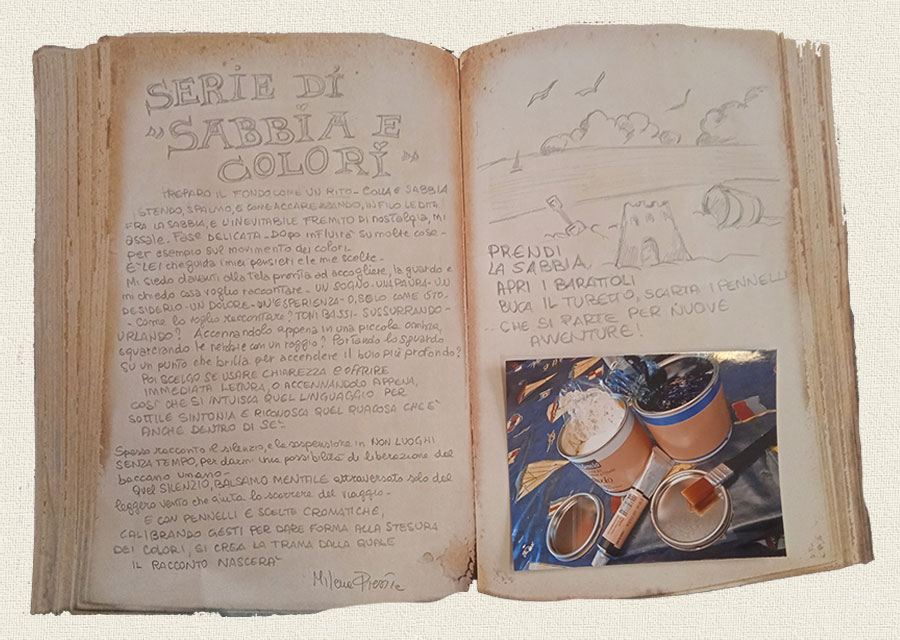 SERIE DI
"SABBIA E
COLORI"
PREPARO IL FONDO COME UN RITO - COLLA E SABBIA
STENDO, SPALMO, E COME ACCAREZZANDO, INFILO LE DITA
FRA LA SABBIA, E L'INEVITABILE FREMITO DI NOSTALGIA, MI
assale. Fase DELICATA - DOPO influirà su molte cose -
per esempio sul movimento dei colori.
E' LEI che guida i miei pensieri e le mie scelte -
Mi siedo davanti alla tela pronta ad accogliere, la guardo e
mi chiedo cosa voglio raccontare - UN SOGNO - UNA PAURA - UN
DESIDERIO - UN DOLORE - UN'ESPERIENZA - O SOLO COME STO -
- Come lo voglio raccontare? TONI BASSI - SUSSURRANDO -
URLANDO? Accennandolo appena in una piccola ombra,
squarciando le nebbie con un raggio? Portando lo sguardo
su un punto che brilla per accendere il buio più profondo?
POI SCELGO SE USARE CHIAREZZA E OFFRIRE
IMMEDIATA LETTURA, O ACCENNANDOLO APPENA,
COSI' CHE SI INTUISCA QUEL LINGUAGGIO PER
SOTTILE SINTONIA E RICONOSCA QUEL QUALCOSA CHE E'
ANCHE DENTRO DI SE' -
Spesso racconto il silenzio, e la sospensione in NON LUOGHI
SENZA TEMPO, per darmi una possibilità di liberazione dal
baccano umano -
Quel SILENZIO, BALSAMO MENTALE attraversato solo dal
leggero vento che aiuta lo scorrere del viaggio -
E CON PENNELLI E SCELTE CROMATICHE,
CALIBRANDO GESTI PER DARE FORMA ALLA STESURA
DEI COLORI, SI CREA LA TRAMA DALLA QUALE
IL RACCONTO NASCERA'
Milena
PRENDI
LA SABBIA,
APRI I BARATTOLI
BUCA IL TUBETTO, SCARTA I PENNELLI
... CHE SI PARTE PER NUOVE
AVVENTURE!